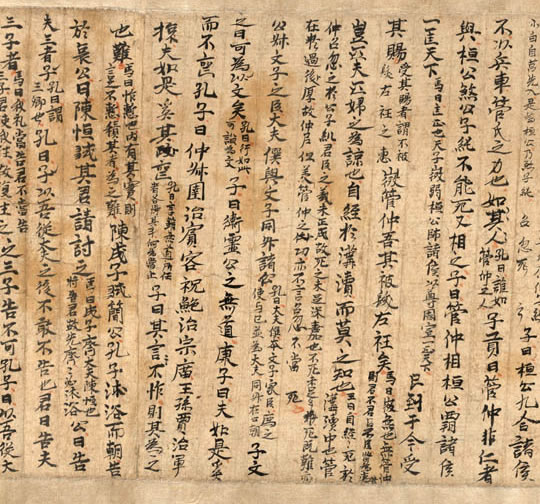 小白自莒先入是為桓公乃殺子糾召忽死 子曰桓公九合諸侯
不以兵車管氏之力也如其人孔曰誰如管仲之人子貢曰管仲非仁者
與桓公煞公子糾不能死又相之子曰管仲相桓公霸諸侯
一匡天下馬曰匡正也天子微弱桓公帥諸侯以尊周室一匡天下民到于今受
其賜受其賜者謂不被髮左衽之惠微管仲吾其被髮左衽矣馬曰微無也無管仲則君不君臣不臣
豈若匹夫匹婦之為諒也自經於溝瀆而莫之知也王曰自經經死於溝瀆中也管
仲召忽之於公子糾君臣之義未正成故死之未足深嘉也不死未足多非死既難亦
在於過後厚故仲尼但美管仲之功亦不言召忽不當死
公叔文子之臣大夫僎與文子同升諸公孔曰大夫僎本文子家臣薦之使与己並為大夫同升在公朝子文
之曰可為以文矣孔曰行如是可謚為文子曰衛靈公之無道康子曰夫如是奚
而不喪孔子曰仲叔圉治賓客祝鮀治宗廟王孫賈治軍
旅夫如是奚其喪孔曰言雖無道所任者各當其才何為當亡子曰其言不怍則其為之
也難馬曰怍慙也內有其實則言之不慙積其實者為之難陳成子弒簡公孔子沐浴而朝告
於哀公曰陳恒弒其君請討之馬曰成子齊大夫陳恒也將告君故先齋必沐浴公曰告
夫三子孔曰謂三卿也孔子曰以吾從大夫之後不敢不告也君曰告夫
三子者馬曰我礼當告君不當告三子君使我往故復往之三子告不可孔子曰以吾從大